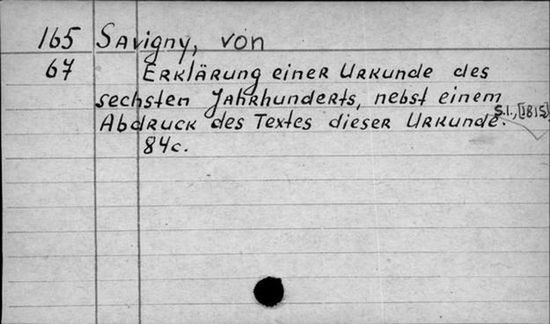 165 Savigny, von
67 Erklärung einer Urkunde des
sechsten Jahrhunderts, nebst einem
Abdruck des Textes dieser Urkunde. s.l., [1815]
84c.